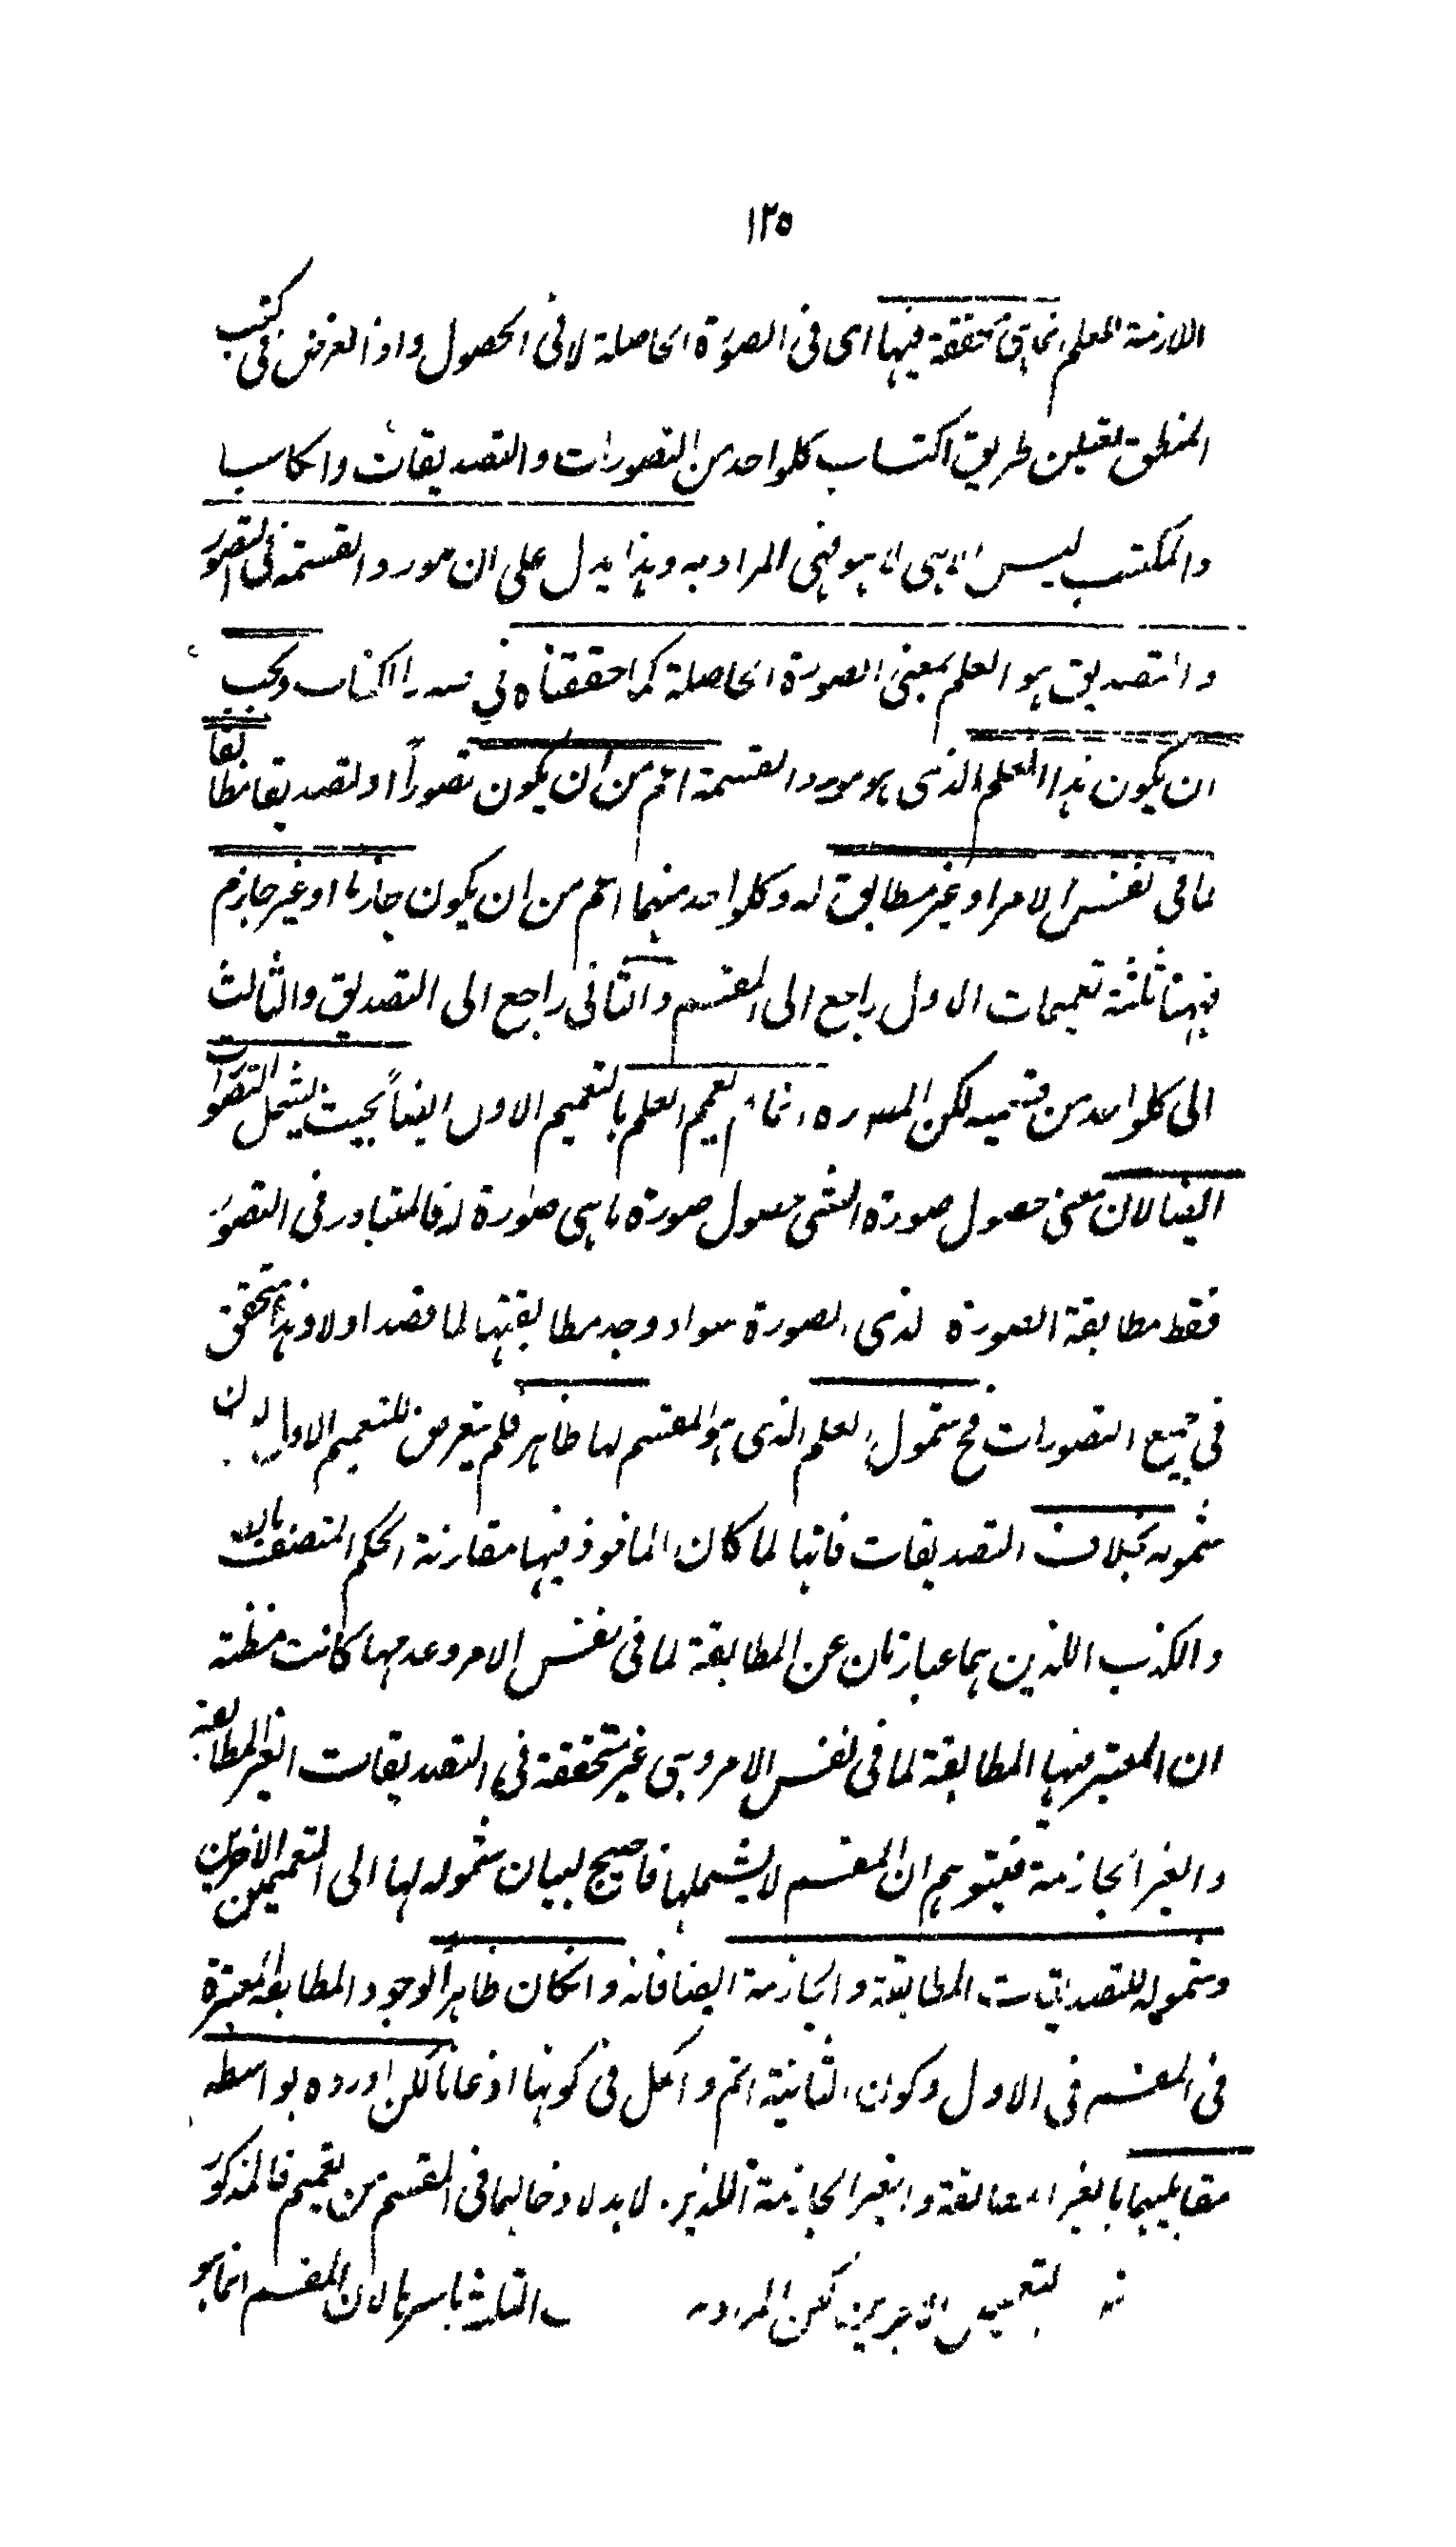 ١٢٥
اللازمة للعلم انما هى متحققة فيها اى فى الصورة الحاصلة لا فى الحصول واذ الغرض فى كتب
المنطق تفتيش طريق اكتساب كلواحد من التصورات والتصديقات والكاسب
والمكتسب ليس الا هى لا هو فهى المراد به وهذا يدل على ان مورد القسمة فى التصور
والتصديق هو العلم بمعنى الصورة الحاصلة كما حققناه فى صدر الكتاب ويجب
ان يكون هذا العلم الذى هو مورد القسمة اعم من ان يكون تصوراً او تصديقا مطابقا
لما فى نفس الامر او غير مطابق له وكلواحد منهما اعم من ان يكون جازما او غير جازم
فههنا ثلثة تعميمات الاول راجع الى المقسم والثانى راجع الى التصديق والثالث
الى كلواحد من قسميه لكن المصدره انما لم يعمم العلم بالتعميم الاول ايضاً بحيث يشمل التصورات
ايضا لان معنى حصول صورة الشئ حصول صورة ما هى صورة له فالمتبادر فى التصور
فقط مطابقة الصورة لذى الصورة سواء وجد مطابقتها لما قصد اولا وهذا متحقق
فى جميع التصورات فح شمول العلم الذى هو المقسم لها ظاهر فلم يتعرض للتعميم الاول
شموله بخلاف التصديقات فانها لما كان الماخوذ فيها مقارنة الحكم المتصف بالصدق
والكذب اللذين هما عبارتان عن المطابقة لما فى نفس الامر وعدمها كانت مظنة
ان المعتبر فيها المطابقة لما فى نفس الامر وهى غير متحققة فى التصديقات الغير المطابقة
والغير الجازمة فيتوهم ان المقسم لا يشملها فاحتيج لبيان شموله لها الى التعميمين الاخرين
وشموله للتصديقات المطابقة والجازمة ايضا فانه وانكان ظاهراً لوجود المطابقة المعتبرة
فى المقسم فى الاول وكون الثانية اتم واكمل فى كونها اذعانا لكن اورده بواسطة
مقابليهما بالغير المطابقة والغير الجازمة اللذين لا بد لادخالهما فى المقسم من تعميم فالمذكور
التعميمين الاخيرين لكن المراد الثلث باسرها لان المقسم انما هو